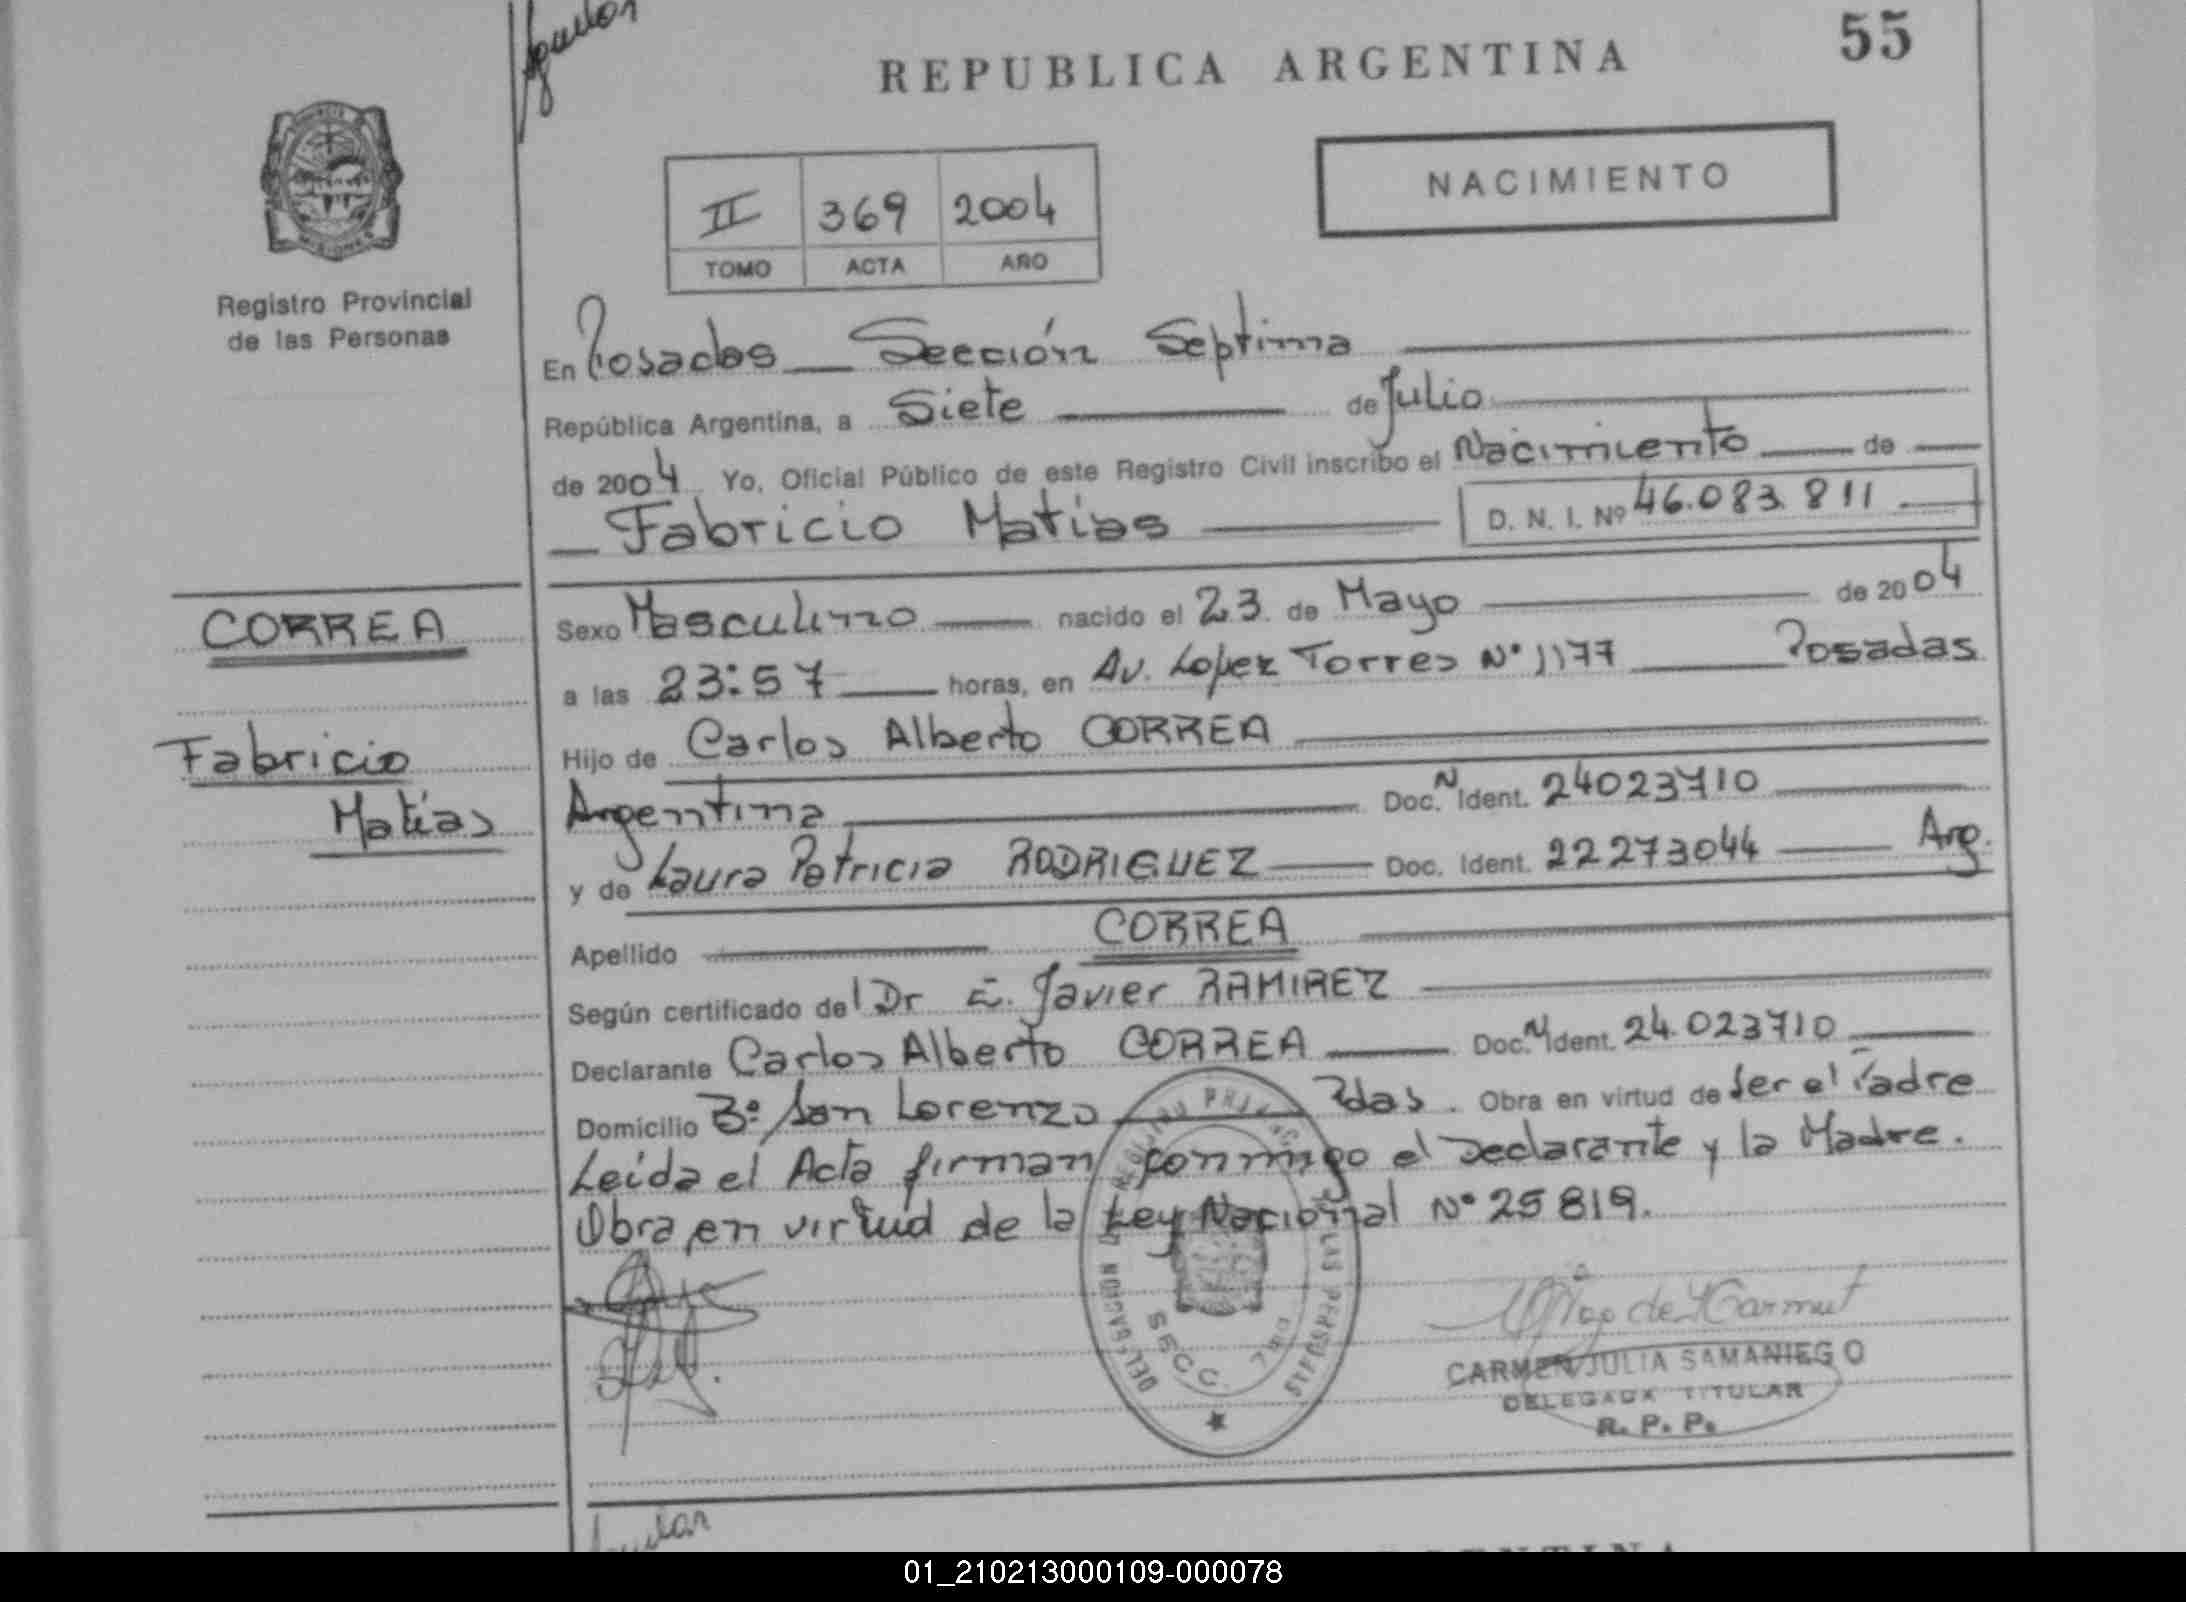 REPUBLICA ARGENTINA
55
NACIMIENTO
II 369 2004
TOMO ACTA AÑO
MISIONES
Registro Provincial
de las Personas
En Posadas Sección Septima
República Argentina, a Siete de Julio
de 2004 Yo, Oficial Público de este Registro Civil inscribo el Nacimiento de
Fabricio Matías D. N. I. Nº 46.083.811
CORREA
Fabricio
Matías
Sexo Masculino nacido el 23 de Mayo de 2004
a las 23:57 horas, en Av. Lopez Torres Nº 1177 Posadas
Hijo de Carlos Alberto CORREA
Argentina Doc. N Ident. 24023710
y de Laura Patricia RODRIGUEZ Doc. Ident. 22273044 Arg.
Apellido CORREA
Según certificado del Dr E. Javier RAMIREZ
Declarante Carlos Alberto CORREA Doc. N Ident. 24.023710
Domicilio Bº San Lorenzo Pdas. Obra en virtud de ser el Padre
Leída el Acta firman conmigo el Declarante y la Madre.
Obra en virtud de la Ley Nacional Nº 25819.
CARMEN JULIA SAMANIEGO
DELEGADA TITULAR
R. P. P.
01_210213000109-000078